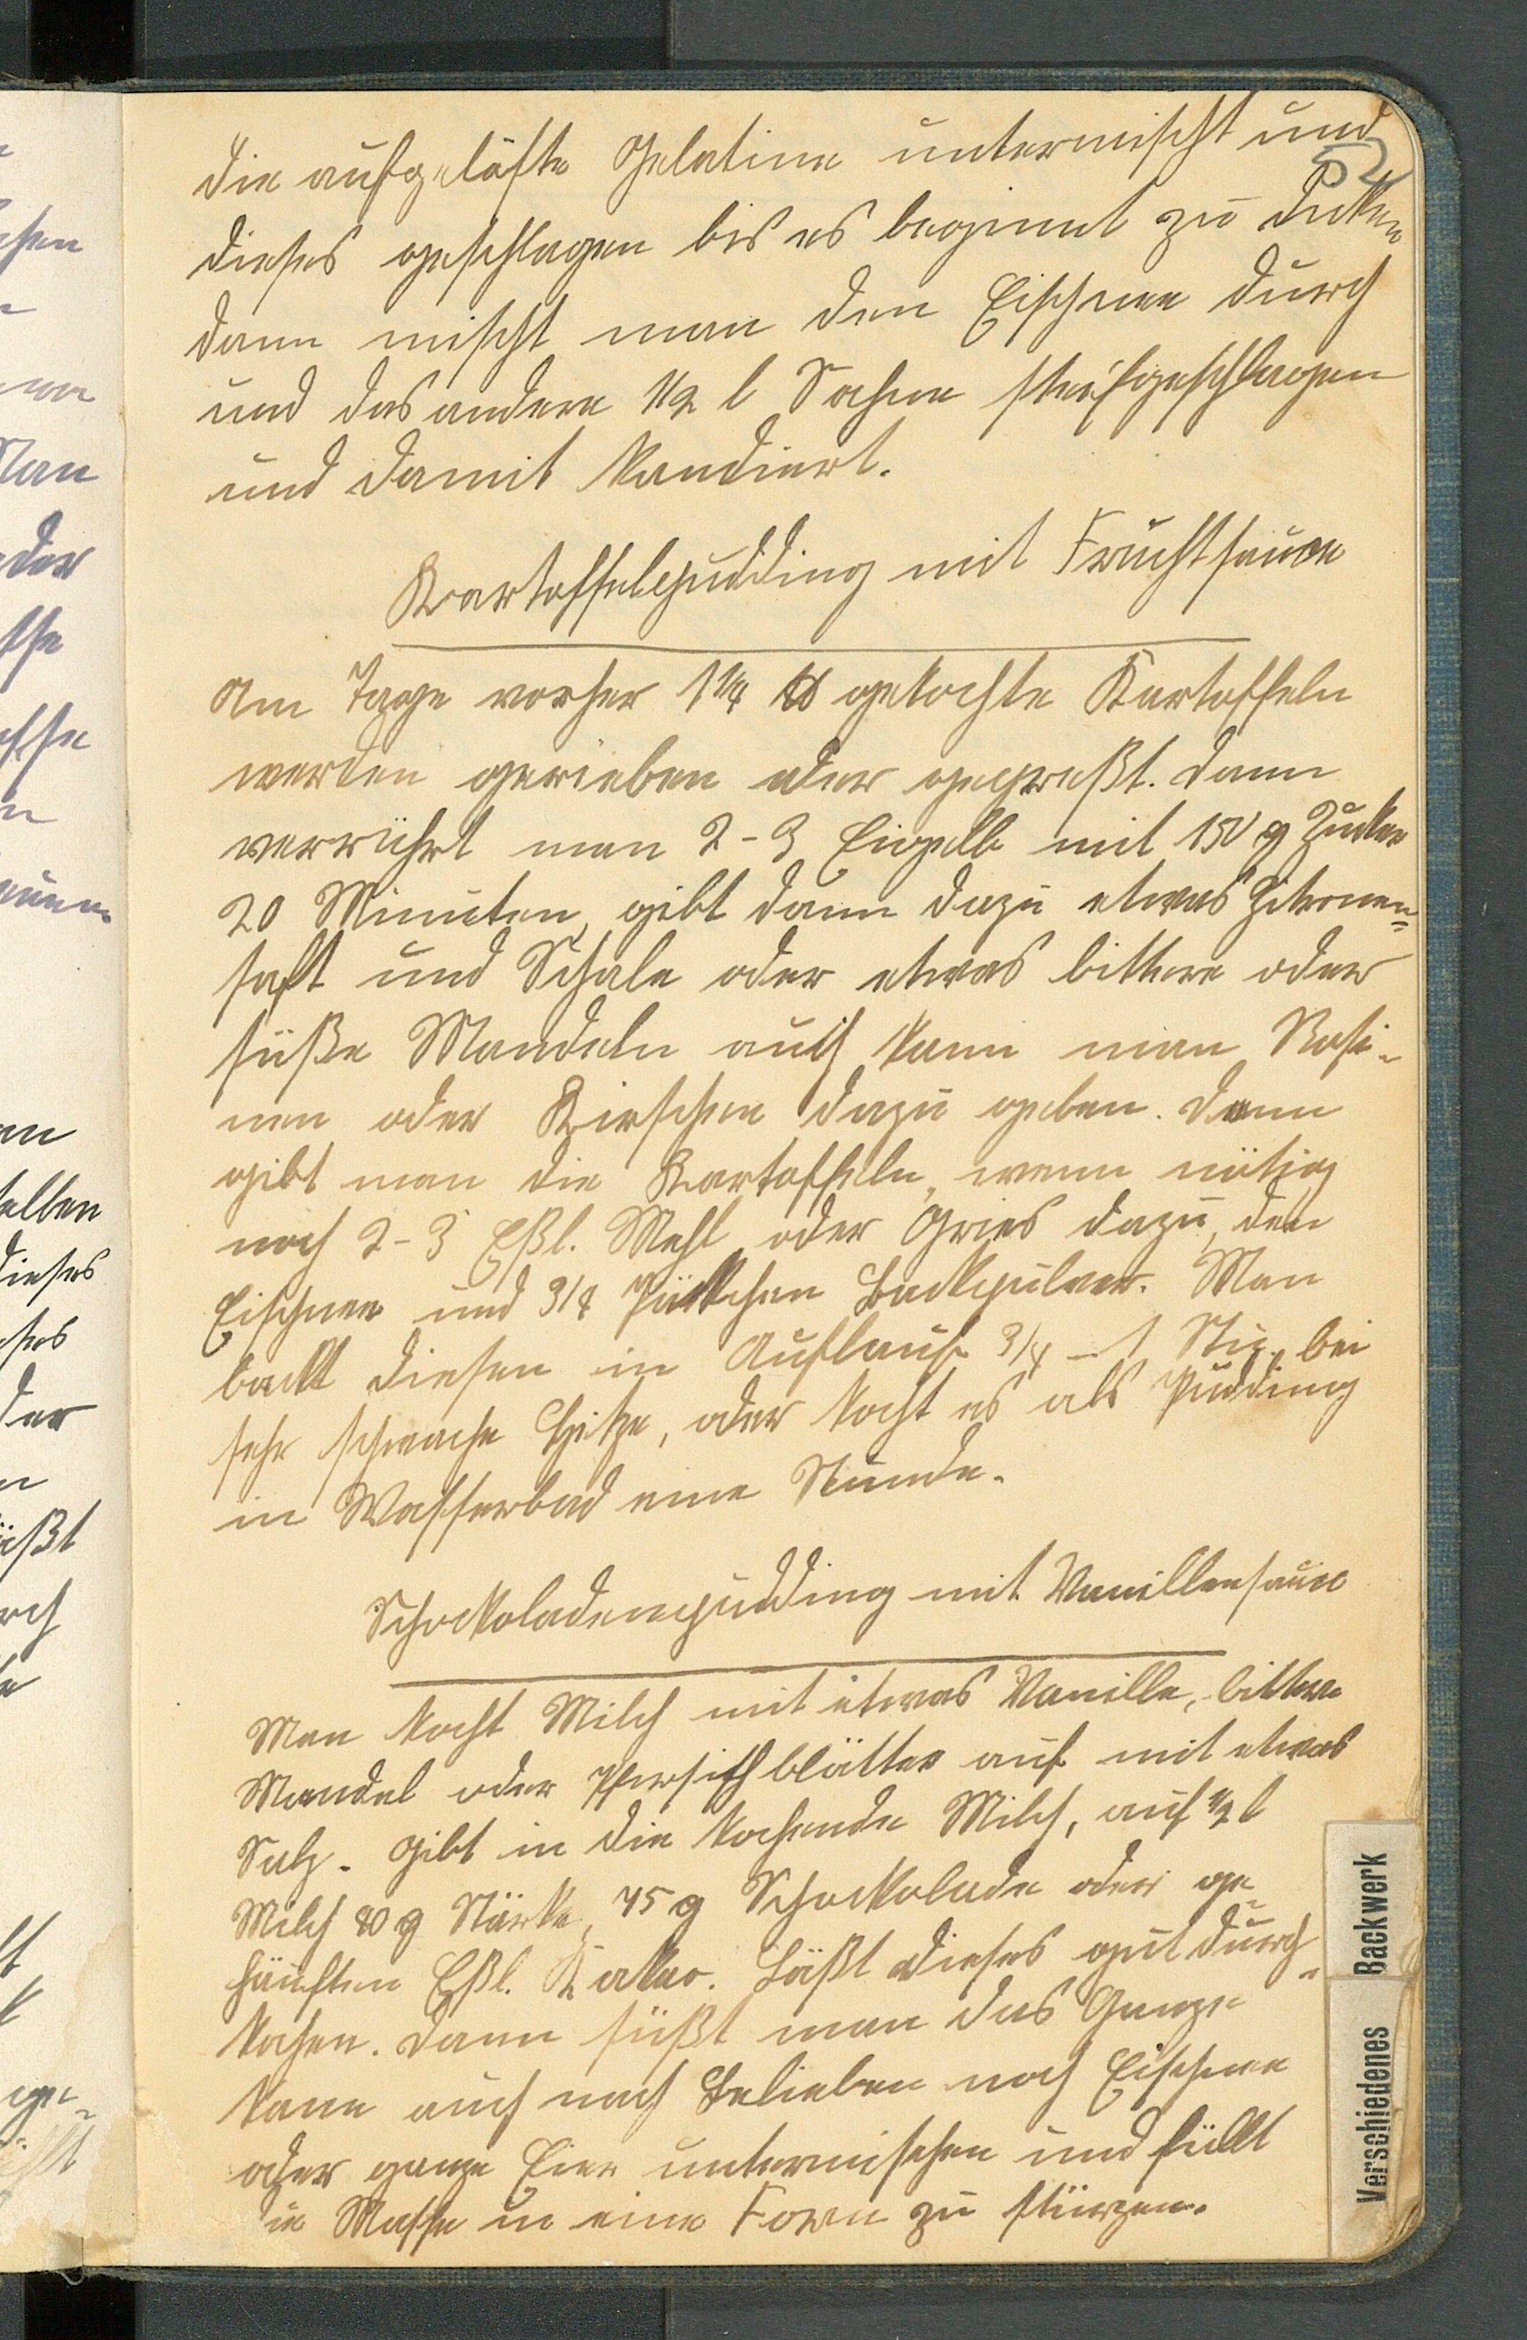 52
die aufgelöste Gelatine untermischt und
dieses geschlagen bis es beginnt zu dicken
dann mischt man den Eischnee durch
und das andere 1/2 l Sahne steifgeschlagen
und damit kandiert.
Kartoffelpudding mit Fruchtsauce
Am Tage vorher 1 1/4 ℔ gekochte Kartoffeln
werden gerieben oder gepreßt. Dann
verrührt man 2-3 Eigelb mit 150 g Zucker
20 Minuten, gibt dann dazu etwas Zitronen=
saft und Schale oder etwas bittere oder
süße Mandeln auch kann man Rosi-
nen oder Kirschen dazu geben. Dann
gibt man die Kartoffeln, wenn nötig
noch 2-3 Eßl. Mehl oder Gries dazu, den
Eischnee und 3/4 Päckchen Backpulver. Man
backt diesen in Auflauf 3/4 - 1 Stu. bei
sehr schwache Hitze, oder kocht es als Pudding
in Wasserbad eine Stunde.
Schockoladenpudding mit Vanillensauce
Man kocht Milch mit etwas Vanille, bittere
Mandel oder Pfirsichblätter auf mit etwas
Salz. Gibt in die kochende Milch, auf 1/2 l
Milch 80 g Stärke, 45 g Schockolade oder ge-
häuften Eßl. Kakao. Läßt dieses gut durch-
kochen. Dann süßt man das Ganze
kann auch nach Belieben noch Eischnee
oder ganze Eier untermischen und füllt
die Masse in eine Form zu stürzen.
Backwerk
Verschiedenes